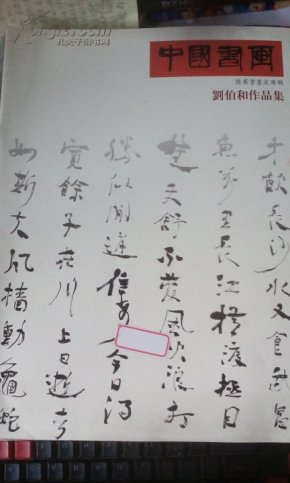 孔夫子旧书网
中國書風
推薦書畫家專輯
劉伯和作品集
才飲長沙水又食武昌
魚萬里長江橫渡極目
楚天舒不管風吹浪打
勝似閒庭信步今日得
寬餘子在川上曰逝者
如斯夫風檣動龜蛇